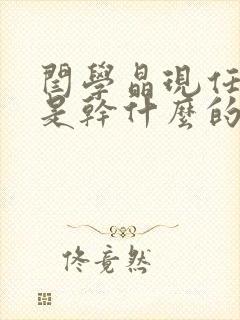 閆學晶現任
是幹什麼的
佟竟然